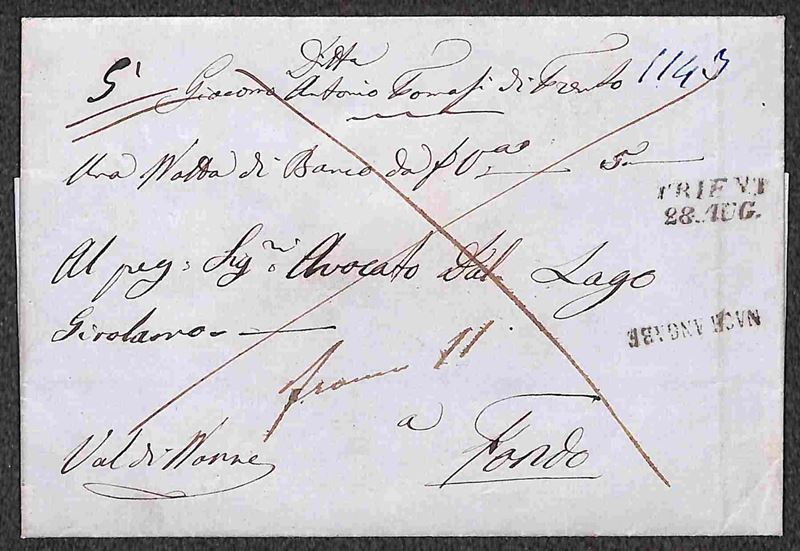 Ditta
5' Giacomo Antonio Tomasi di Trento 1143
Una Notta di Banco da f
5
TRIENT
28. AUG.
Al peg: Sigri Avocato Dal Lago
Girolamo
NACH ANGABE
franco 11
a
Val di Nonne
Fondo